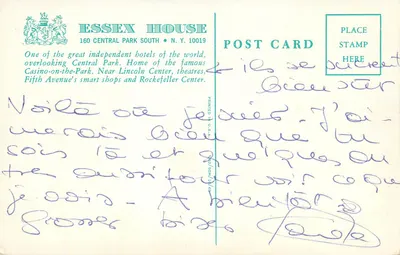 ESSEX HOUSE
160 CENTRAL PARK SOUTH • N. Y. 10019
One of the great independent hotels of the world,
overlooking Central Park. Home of the famous
Casino-on-the-Park. Near Lincoln Center, theatres,
Fifth Avenue's smart shops and Rockefeller Center.
POST CARD
PLACE
STAMP
HERE
ils se suivent
Voilà où je J'ai-
merais bien que tu
sois là et quelques au
tres aussi pour voir ce que
je vois. A bientôt
Grosses bises